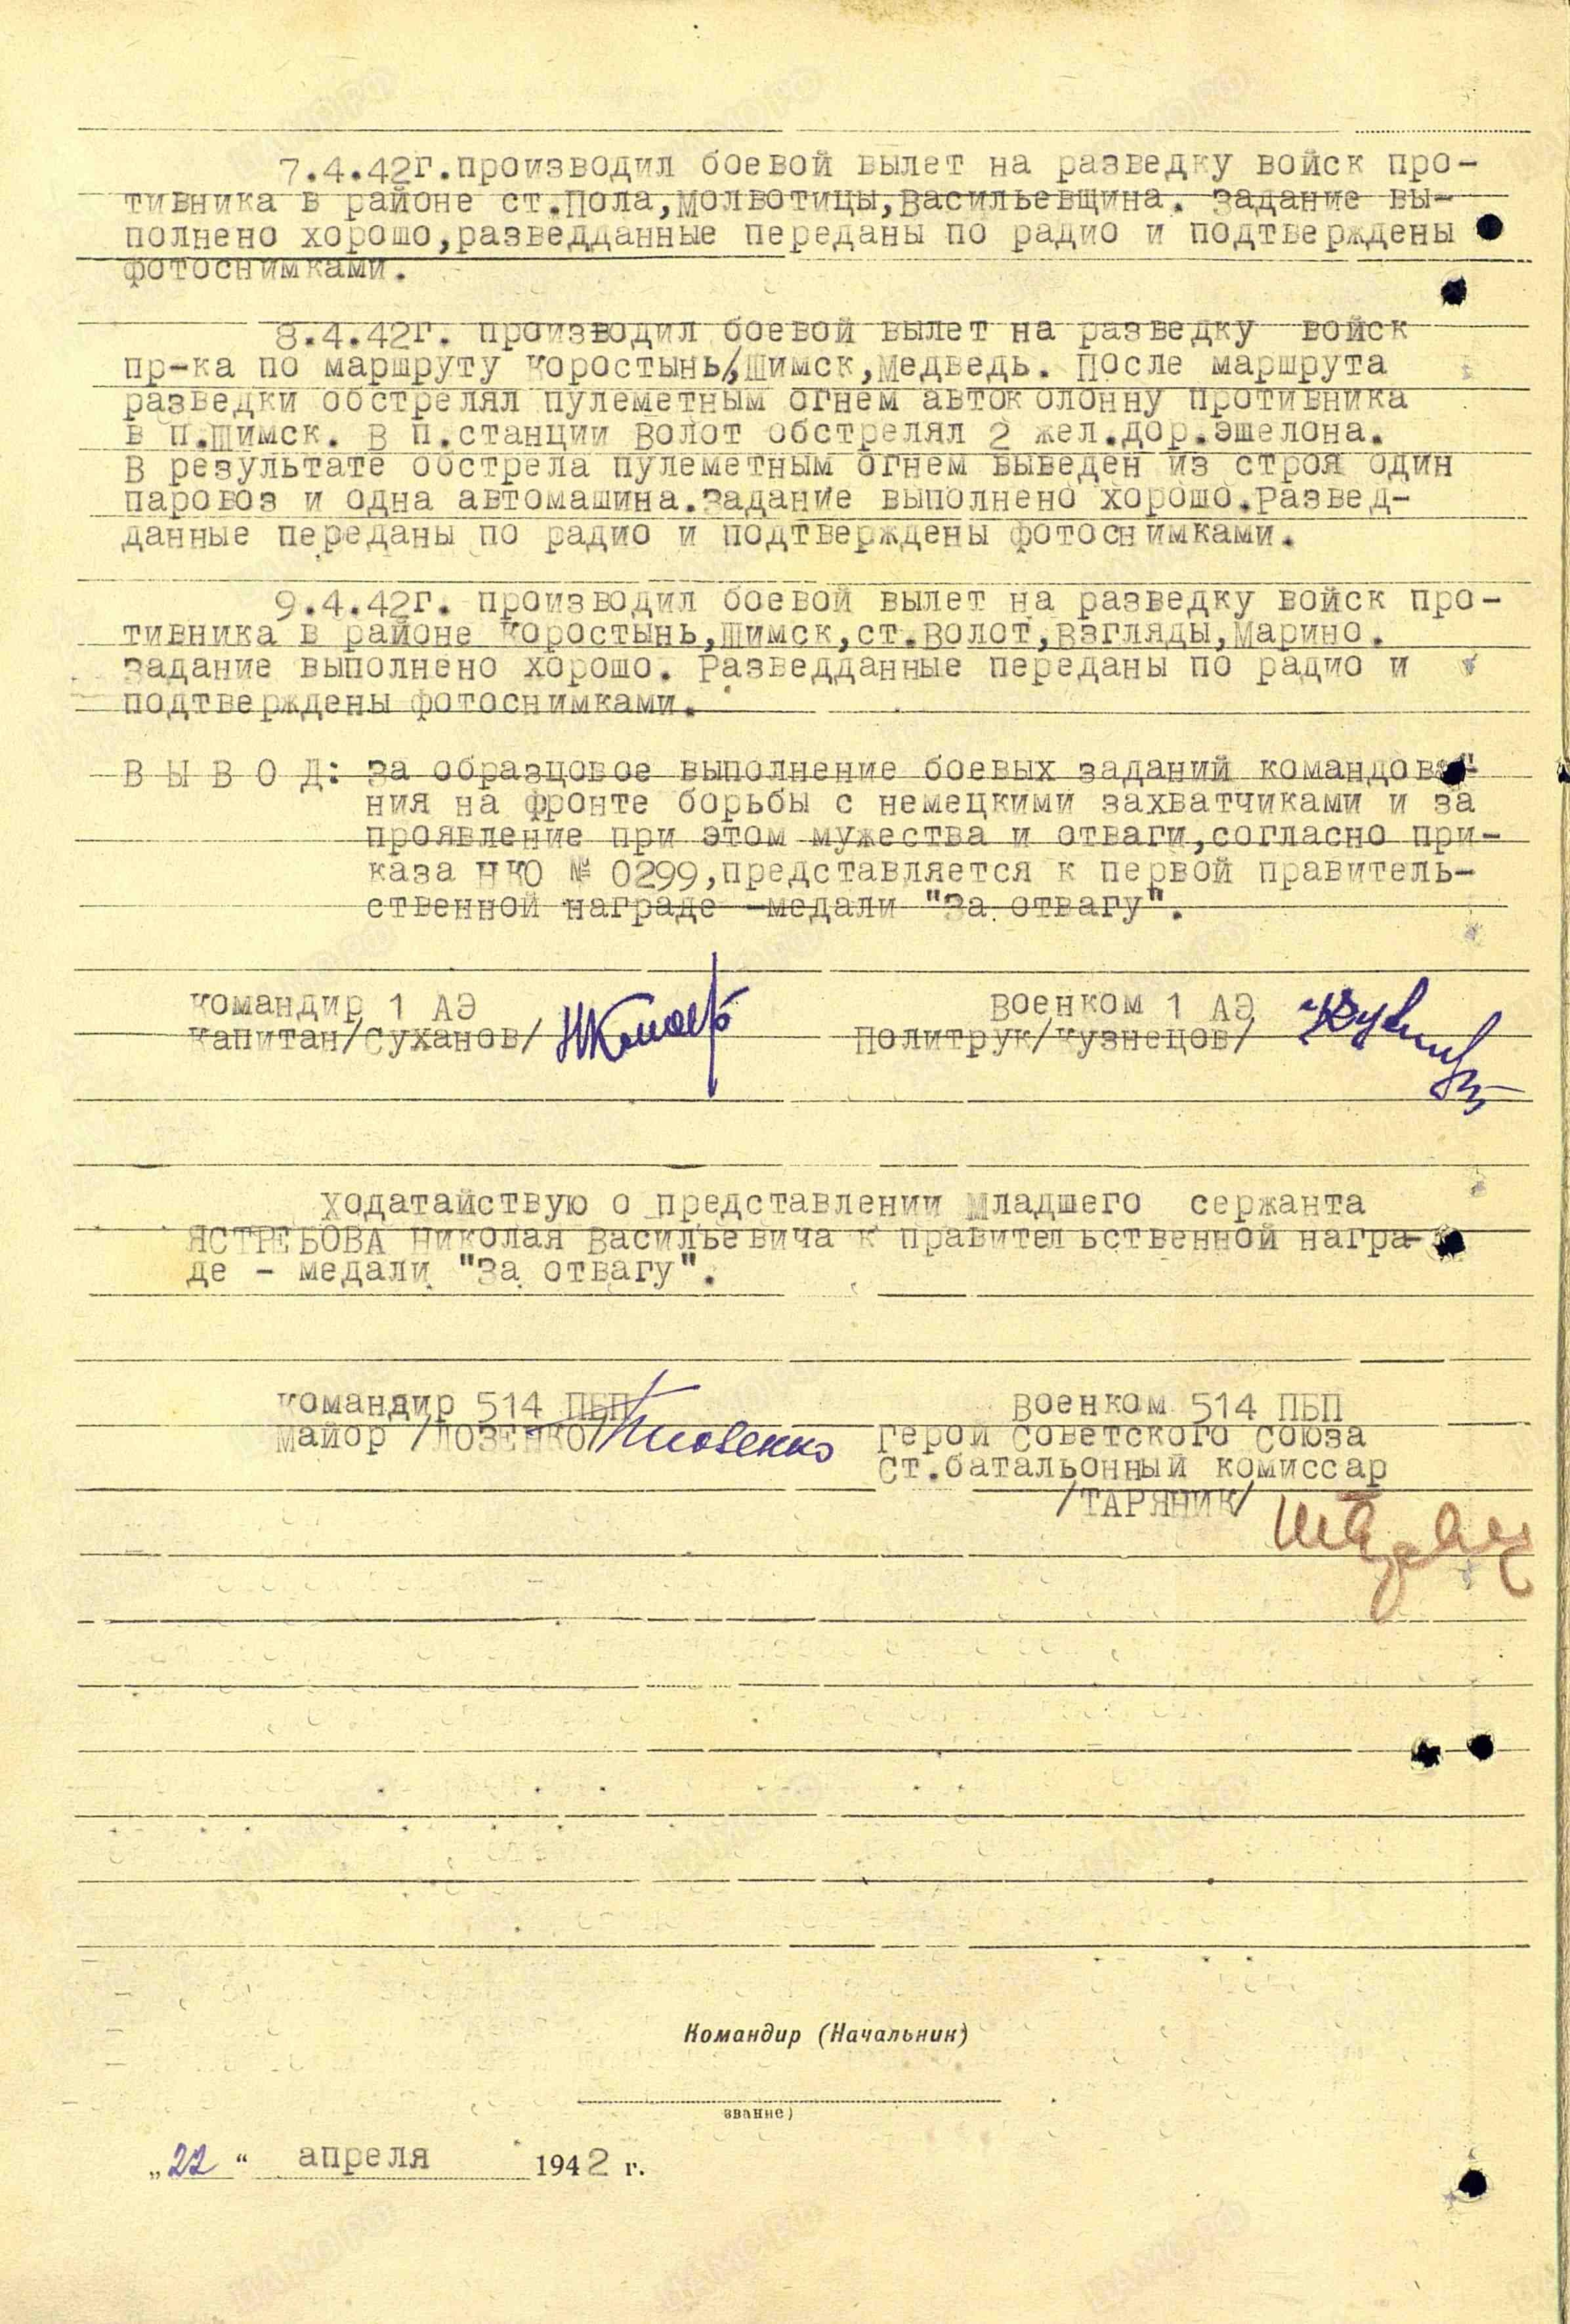 7.4.42г.производил боевой вылет на разведку войск про-
тивника в районе ст.Пола,Молвотицы,Васильевщина. Задание вы-
полнено хорошо,разведданные переданы по радио и подтверждены
фотоснимками.
8.4.42г. производил боевой вылет на разведку войск
пр-ка по маршруту Коростынь,Шимск,Медведь. После маршрута
разведки обстрелял пулеметным огнем автоколонну противника
в п.Шимск. В п.станции Волот обстрелял 2 жел.дор.эшелона.
В результате обстрела пулеметным огнем выведен из строя один
паровоз и одна автомашина.Задание выполнено хорошо.Развед-
данные переданы по радио и подтверждены фотоснимками.
9.4.42г. производил боевой вылет на разведку войск про-
тивника в районе Коростынь,Шимск,ст.Волот,Взгляды,Марино.
Задание выполнено хорошо. Разведданные переданы по радио и
подтверждены фотоснимками.
В Ы В О Д: За образцовое выполнение боевых заданий командова-
ния на фронте борьбы с немецкими захватчиками и за
проявление при этом мужества и отваги,согласно при-
каза НКО № 0299,представляется к первой правитель-
ственной награде -медали "За отвагу".
Командир 1 АЭ
Капитан/Суханов/
Военком 1 АЭ
Политрук/Кузнецов/
Ходатайствую о представлении Младшего сержанта
ЯСТРЕБОВА Николая Васильевича к правительственной награ-
де - медали "За отвагу".
Командир 514 ПБП
Майор /ЛОЗЕНКО/
Военком 514 ПБП
Герой Советского Союза
Ст.батальонный комиссар
/ТАРЯНИК/
Командир (Начальник)
звание)
„22“ апреля 1942 г.